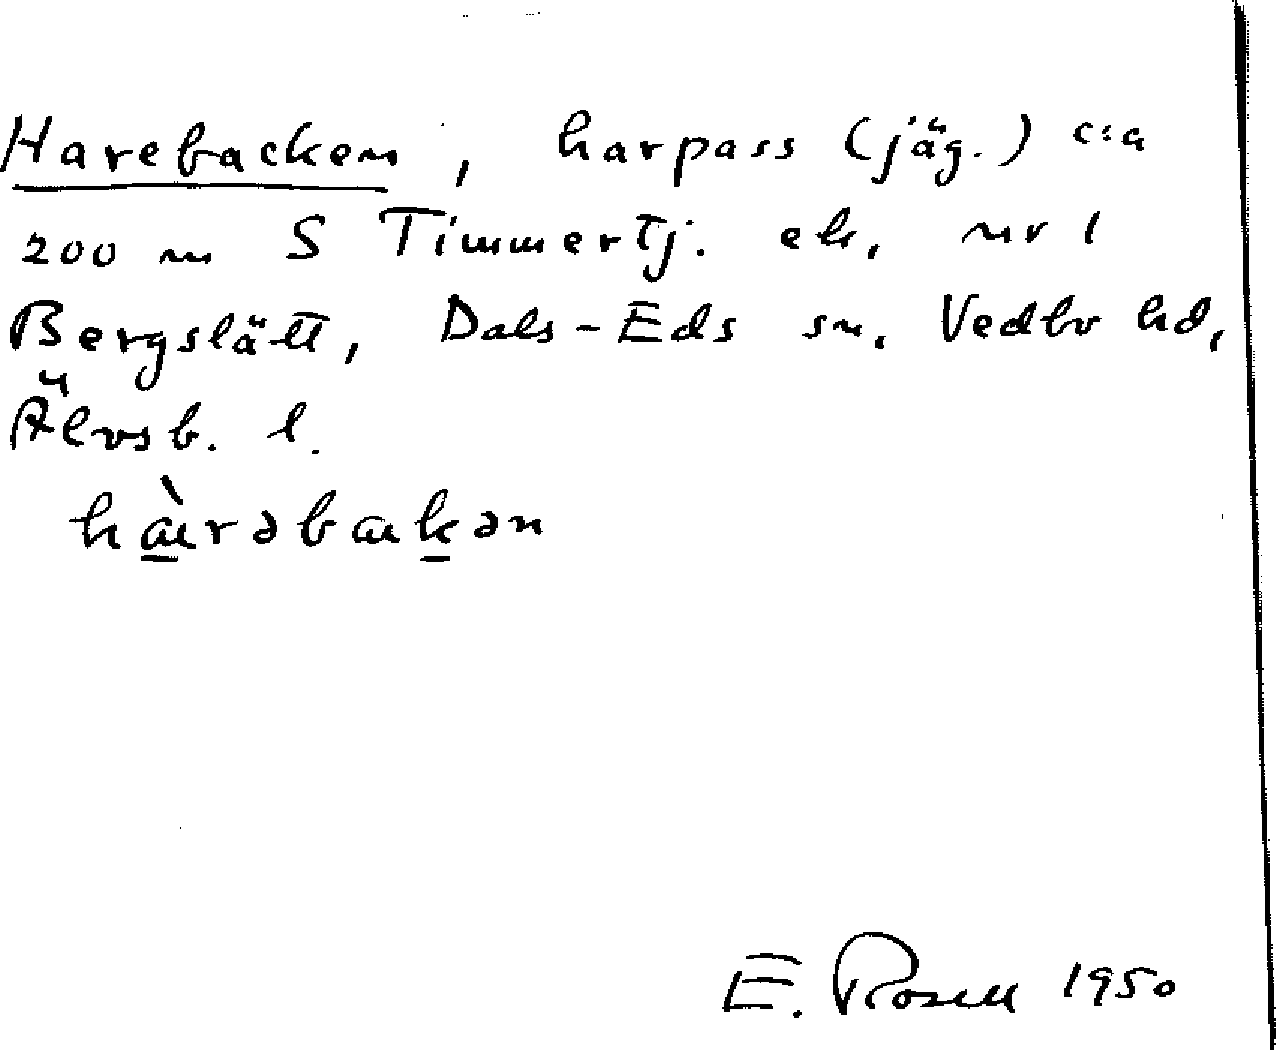 Harebacken, harpass (jäg.) c:a
200 m S Timmertj. ek. nr 1
Bergslätt, Dals-Eds sn. Vedbo hd,
Älvsb. l.
E. Rosell 1950